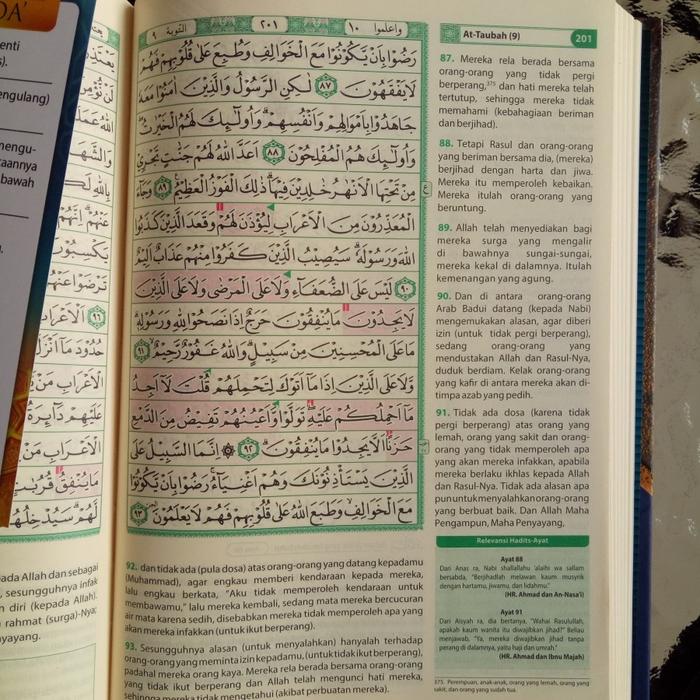 واعلموا ١٠
٢٠١
التوبة ٩
رَضُوا بِأَنْ يَكُونُوا مَعَ الْخَوَالِفِ وَطُبِعَ عَلَىٰ قُلُوبِهِمْ فَهُمْ
لَا يَفْقَهُونَ ٨٧ لَٰكِنِ الرَّسُولُ وَالَّذِينَ آمَنُوا مَعَهُ
جَاهَدُوا بِأَمْوَالِهِمْ وَأَنْفُسِهِمْ ۗ وَأُولَٰئِكَ لَهُمُ الْخَيْرَاتُ ۖ
وَأُولَٰئِكَ هُمُ الْمُفْلِحُونَ ٨٨ أَعَدَّ اللَّهُ لَهُمْ جَنَّاتٍ تَجْرِي
مِنْ تَحْتِهَا الْأَنْهَارُ خَالِدِينَ فِيهَا ۚ ذَٰلِكَ الْفَوْزُ الْعَظِيمُ ٨٩ وَجَاءَ
الْمُعَذِّرُونَ مِنَ الْأَعْرَابِ لِيُؤْذَنَ لَهُمْ وَقَعَدَ الَّذِينَ كَذَبُوا
اللَّهَ وَرَسُولَهُ ۚ سَيُصِيبُ الَّذِينَ كَفَرُوا مِنْهُمْ عَذَابٌ أَلِيمٌ
٩٠ لَيْسَ عَلَى الضُّعَفَاءِ وَلَا عَلَى الْمَرْضَىٰ وَلَا عَلَى الَّذِينَ
لَا يَجِدُونَ مَا يُنْفِقُونَ حَرَجٌ إِذَا نَصَحُوا لِلَّهِ وَرَسُولِهِ ۚ
مَا عَلَى الْمُحْسِنِينَ مِنْ سَبِيلٍ ۚ وَاللَّهُ غَفُورٌ رَحِيمٌ ٩١
وَلَا عَلَى الَّذِينَ إِذَا مَا أَتَوْكَ لِتَحْمِلَهُمْ قُلْتَ لَا أَجِدُ
مَا أَحْمِلُكُمْ عَلَيْهِ تَوَلَّوْا وَأَعْيُنُهُمْ تَفِيضُ مِنَ الدَّمْعِ
حَزَنًا أَلَّا يَجِدُوا مَا يُنْفِقُونَ ٩٢ ۞ إِنَّمَا السَّبِيلُ عَلَى
الَّذِينَ يَسْتَأْذِنُونَكَ وَهُمْ أَغْنِيَاءُ ۚ رَضُوا بِأَنْ يَكُونُوا
مَعَ الْخَوَالِفِ وَطَبَعَ اللَّهُ عَلَىٰ قُلُوبِهِمْ فَهُمْ لَا يَعْلَمُونَ ٩٣
At-Taubah (9)
201
87. Mereka rela berada bersama
orang-orang yang tidak pergi
berperang,³⁷⁵ dan hati mereka telah
tertutup, sehingga mereka tidak
memahami (kebahagiaan beriman
dan berjihad).
88. Tetapi Rasul dan orang-orang
yang beriman bersama dia, (mereka)
berjihad dengan harta dan jiwa.
Mereka itu memperoleh kebaikan.
Mereka itulah orang-orang yang
beruntung.
89. Allah telah menyediakan bagi
mereka surga yang mengalir
di bawahnya sungai-sungai,
mereka kekal di dalamnya. Itulah
kemenangan yang agung.
90. Dan di antara orang-orang
Arab Badui datang (kepada Nabi)
mengemukakan alasan, agar diberi
izin (untuk tidak pergi berperang),
sedang orang-orang yang
mendustakan Allah dan Rasul-Nya,
duduk berdiam. Kelak orang-orang
yang kafir di antara mereka akan di-
timpa azab yang pedih.
91. Tidak ada dosa (karena tidak
pergi berperang) atas orang yang
lemah, orang yang sakit dan orang-
orang yang tidak memperoleh apa
yang akan mereka infakkan, apabila
mereka berlaku ikhlas kepada Allah
dan Rasul-Nya. Tidak ada alasan apa
pun untuk menyalahkan orang-orang
yang berbuat baik. Dan Allah Maha
Pengampun, Maha Penyayang,
92. dan tidak ada (pula dosa) atas orang-orang yang datang kepadamu
(Muhammad), agar engkau memberi kendaraan kepada mereka,
lalu engkau berkata, "Aku tidak memperoleh kendaraan untuk
membawamu," lalu mereka kembali, sedang mata mereka bercucuran
air mata karena sedih, disebabkan mereka tidak memperoleh apa yang
akan mereka infakkan (untuk ikut berperang).
93. Sesungguhnya alasan (untuk menyalahkan) hanyalah terhadap
orang-orang yang meminta izin kepadamu, (untuk tidak ikut berperang),
padahal mereka orang kaya. Mereka rela berada bersama orang-orang
yang tidak ikut berperang dan Allah telah mengunci hati mereka,
sehingga mereka tidak mengetahui (akibat perbuatan mereka).
Relevansi Hadits-Ayat
Ayat 88
Dari Anas ra, Nabi shallallahu 'alaihi wa sallam
bersabda, "Berjihadlah melawan kaum musyrik
dengan hartamu, jiwamu, dan lidahmu."
(HR. Ahmad dan An-Nasa'i)
Ayat 91
Dari Aisyah ra, dia bertanya, "Wahai Rasulullah,
apakah kaum wanita itu diwajibkan jihad?" Beliau
menjawab, "Ya, mereka diwajibkan jihad tanpa
perang di dalamnya, yaitu haji dan umrah."
(HR. Ahmad dan Ibnu Majah)
375. Perempuan, anak-anak, orang yang lemah, orang yang
sakit, dan orang yang sudah tua.